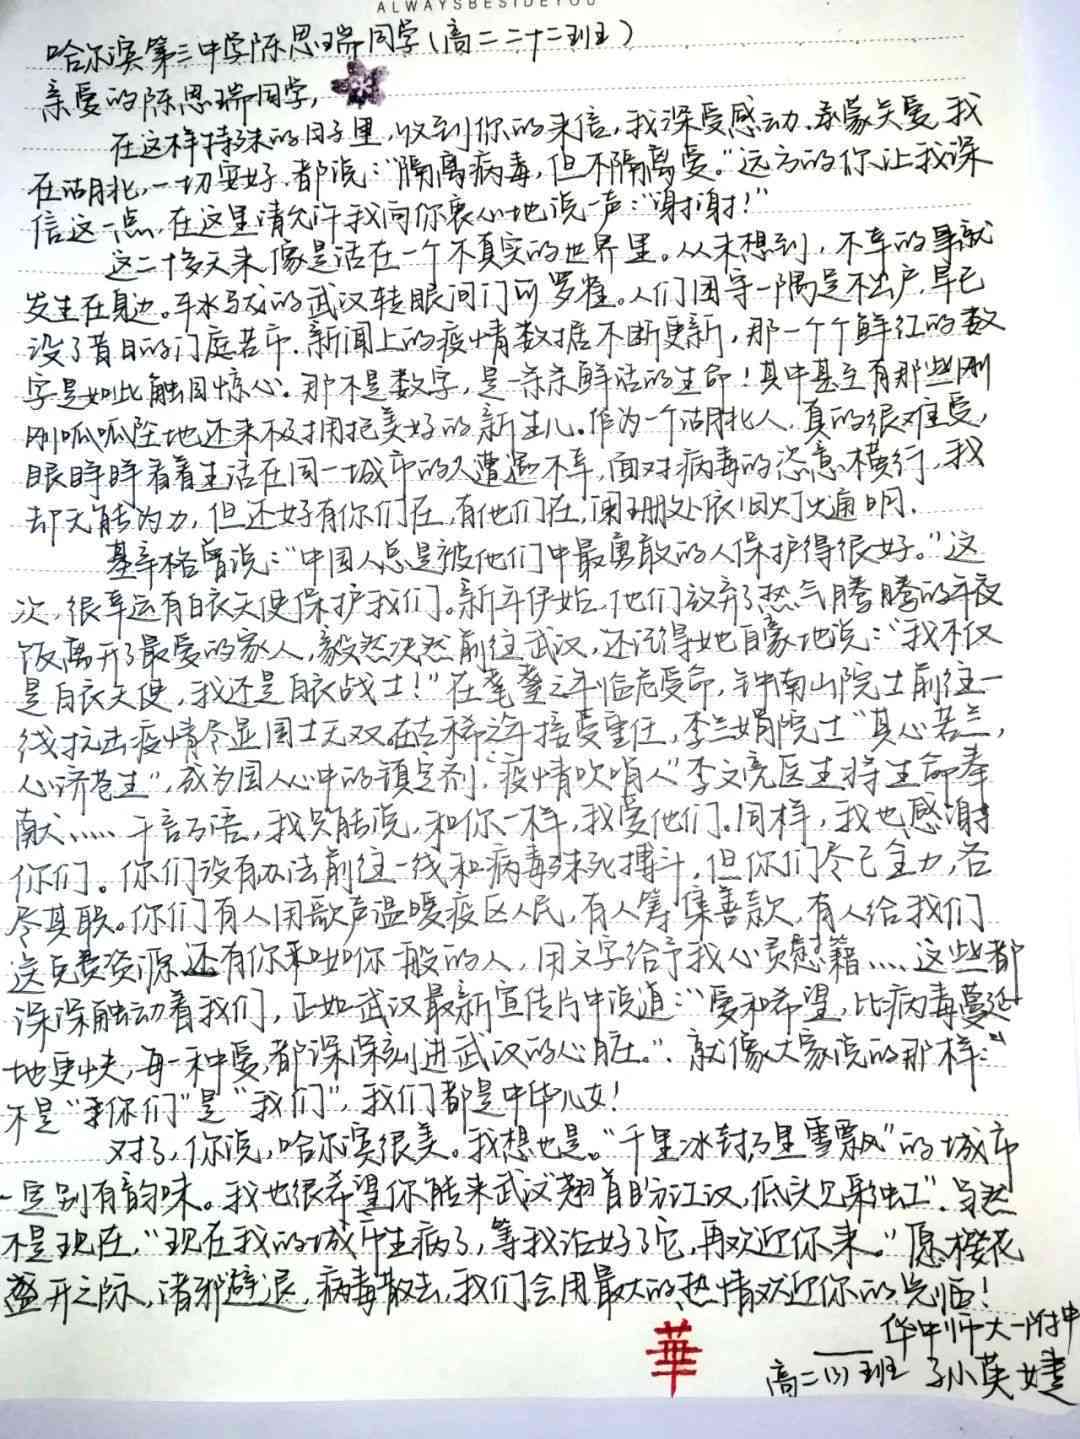 ALWAYSBESIDEYOU
哈尔滨第三中学陈思瑞同学(高二二十二班)
亲爱的陈思瑞同学,
在这样特殊的日子里,收到你的来信,我深受感动.承蒙关爱,我
在湖北,一切安好.都说:“隔离病毒,但不隔离爱。”远方的你让我深
信这一点,在这里请允许我向你衷心地说一声:“谢谢!”
这二十多天来像是活在一个不真实的世界里。从未想到,不幸的事就
发生在身边。车水马龙的武汉转眼间门可罗雀。人们困守一隅足不出户,早已
没了昔日的门庭若市.新闻上的疫情数据不断更新,那一个个鲜红的数
字是如此触目惊心。那不是数字,是一条条鲜活的生命!其中甚至有那些刚
刚呱呱坠地还来不及拥抱美好的新生儿。作为一个湖北人,真的很难受,
眼睁睁看着生活在同一城市的人遭遇不幸,面对病毒的恣意横行,我
却无能为力,但还好有你们在,有他们在,阑珊处依旧灯火通明.
基辛格曾说:“中国人总是被他们中最勇敢的人保护得很好。”这
次,很幸运有白衣天使保护我们。新年伊始.他们放弃了热气腾腾的年夜
饭离开了最爱的家人,毅然决然前往武汉,还记得她自豪地说:“我不仅
是白衣天使,我还是白衣战士!”在耄耋之年临危受命,钟南山院士前往一
线抗击疫情尽显国士无双.在古稀之年接受重任,李兰娟院士“其心若兰,
心济苍生”,成为国人心中的镇定剂.“疫情吹哨人”李文亮医生将生命奉
献......千言万语,我只能说,和你一样,我爱他们.同样,我也感谢
你们。你们没有办法前往一线和病毒殊死搏斗,但你们尽己全力,各
尽其职。你们有人用歌声温暖疫区人民,有人筹集善款,有人给我们
送免费资源.还有你和如你一般的人,用文字给予我心灵慰藉....这些都
深深触动着我们,正如武汉最新宣传片中说道:“爱和希望,比病毒蔓延
地更快,每一种爱,都深深刻进武汉的心脏.”.就像大家说的那样:“
不是“你们”是“我们”,我们都是中华儿女!
对了,你说,哈尔滨很美。我想也是。“千里冰封,万里雪飘”的城市
一定别有韵味。我也很希望你能来武汉“翘首盼江汉,低头见彩虹”.当然
不是现在,“现在我的城市生病了,等我治好了它,再欢迎你来。”愿樱花
盛开之际,诸邪避退,病毒散去,我们会用最大的热情欢迎你的光临!
华中师大一附中
華
高二(3)班 孙英婕